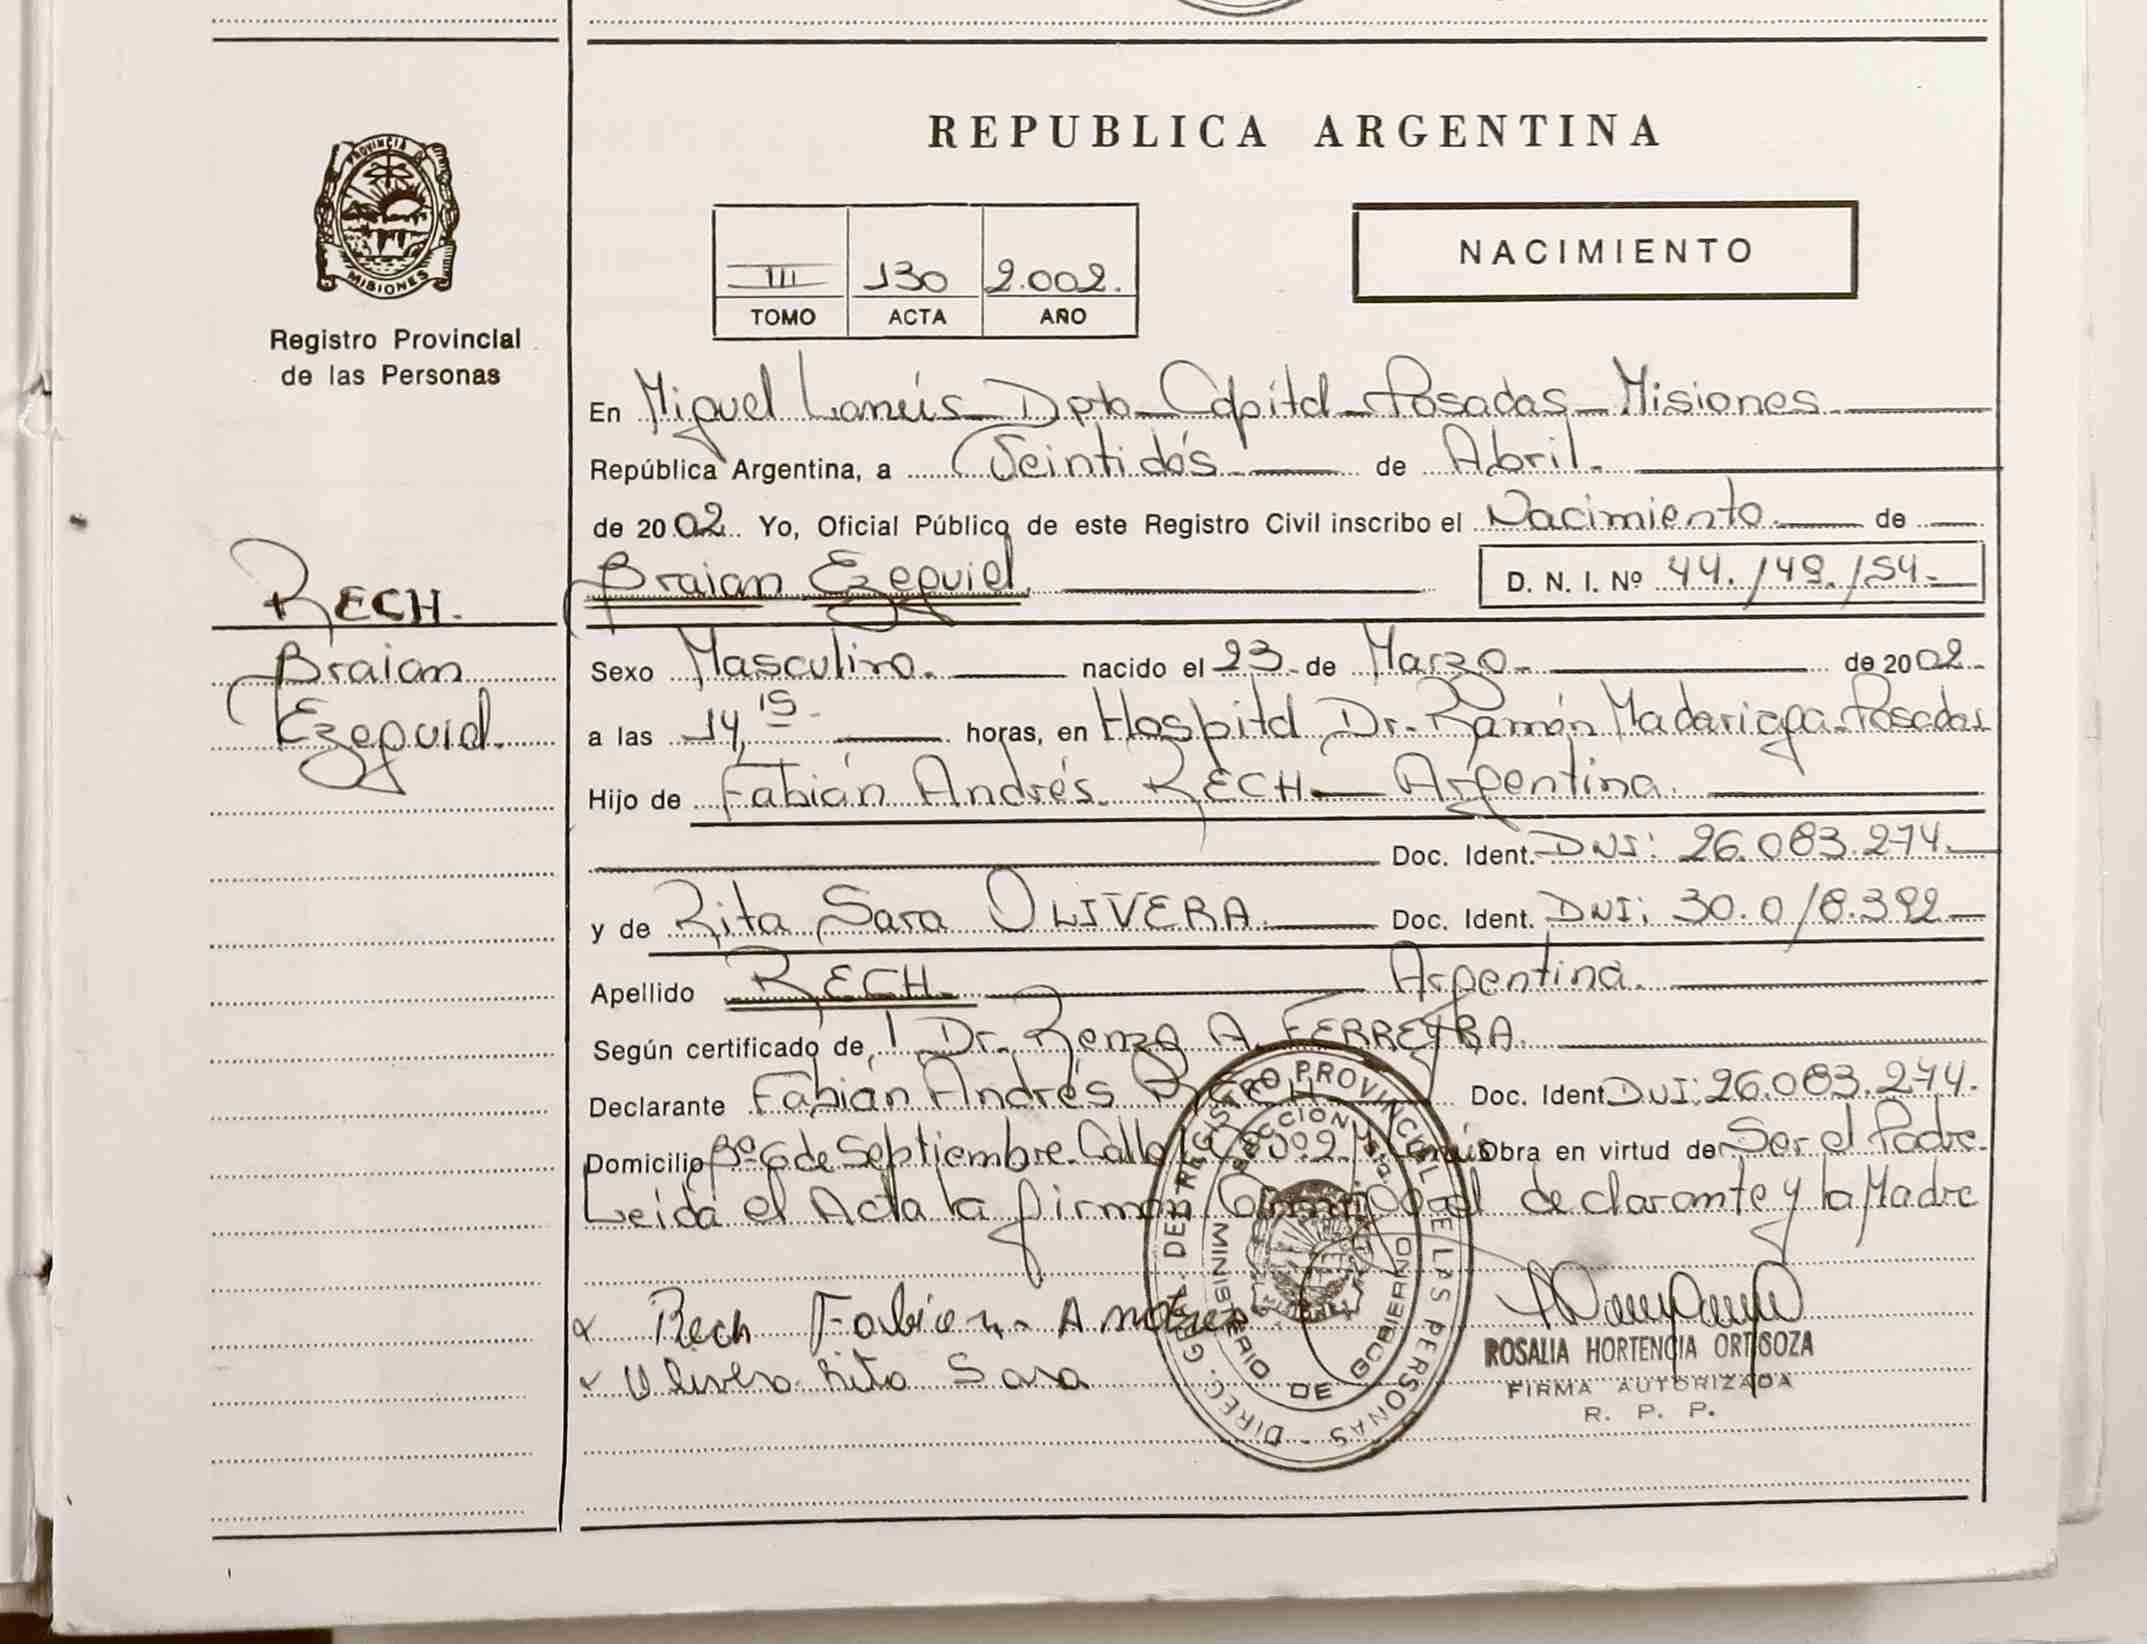 PROVINCIA DE
MISIONES
Registro Provincial
de las Personas
REPUBLICA ARGENTINA
NACIMIENTO
III 130 2.002.
TOMO ACTA AÑO
En Miguel Lanús Dpto Capital Posadas Misiones
República Argentina, a Veintidós de Abril.
de 2002. Yo, Oficial Público de este Registro Civil inscribo el Nacimiento de
RECH. Braian Ezequiel D. N. I. Nº 44.149.154.
Braian Sexo Masculino. nacido el 23 de Marzo de 2002
Ezequiel. a las 14,15 horas, en Hospital Dr. Ramón Madariaga Posadas
Hijo de Fabián Andrés RECH Argentina.
Doc. Ident. DNI: 26.083.274.
y de Rita Sara OLIVERA. Doc. Ident. DNI: 30.018.392
Apellido RECH. Argentina.
Según certificado de Dr. Renzo A. FERREYRA.
Declarante Fabián Andrés RECH Doc. Ident DNI: 26.083.274.
Domicilio Bº 6 de Septiembre Calle Lanús Obra en virtud de Ser el Padre
Leída el Acta la firman Conmigo el declarante y la Madre
Rech Fabian Andres
Olivera Rita Sara
ROSALIA HORTENCIA ORTIGOZA
FIRMA AUTORIZADA
R. P. P.
DIREC. GRAL. DE REGISTRO PROVINCIAL DE LAS PERSONAS
MINISTERIO DE GOBIERNO